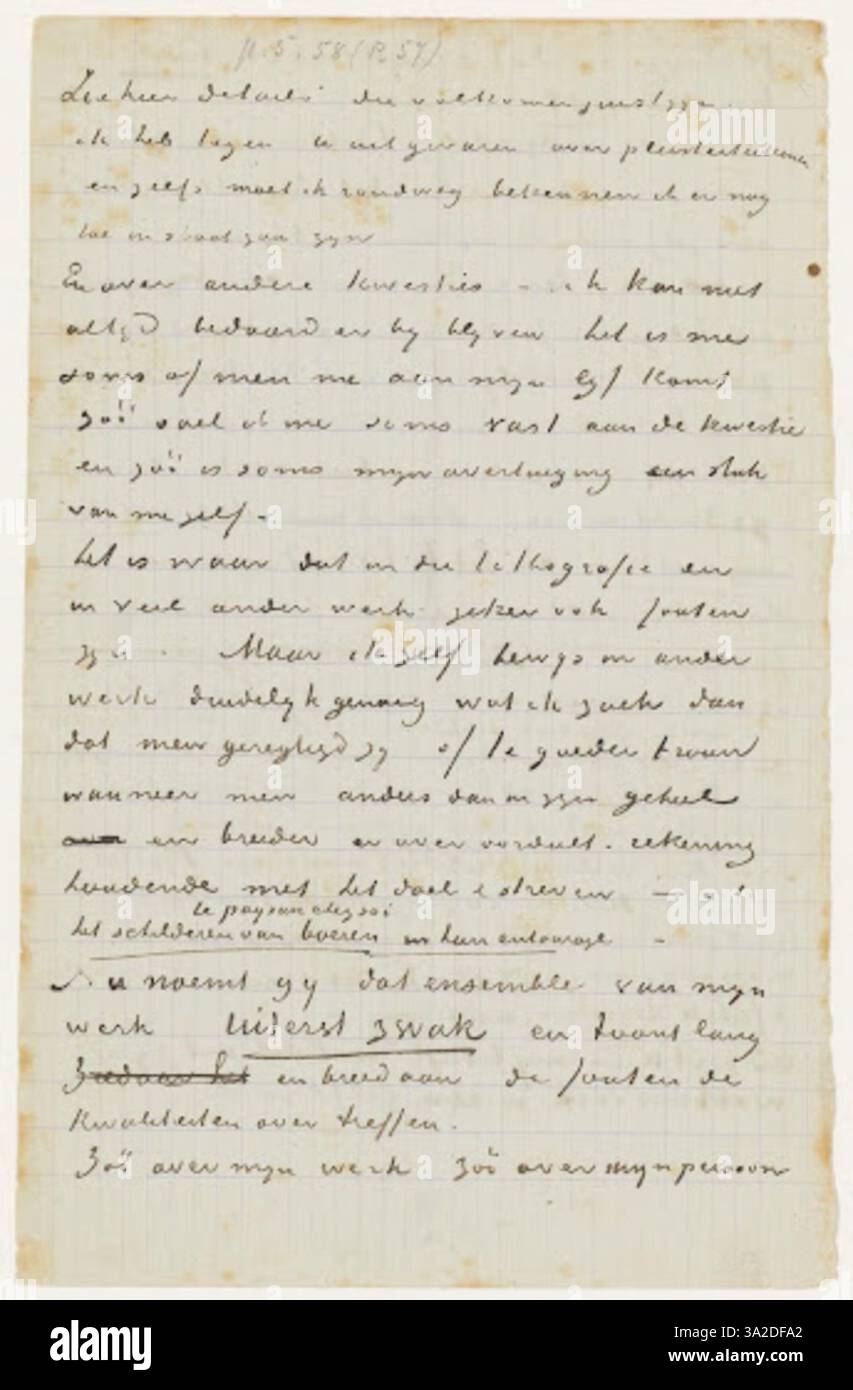 p. 5. 58 (R 57)
Zie hier details die volkomen juist zyn.
ik heb tegen u uitgevaren over pleisterbeelden
en zelfs moet ik rondweg bekennen ik er nog
toe in staat zou zyn
En over andere kwesties – ik kan niet
altyd bedaard er by blyven het is me
soms of men me aan myn lyf komt
zóó voel ik me soms vast aan de kwestie
en zóó is soms myn overtuiging een stuk
van me zelf –
Het is waar dat in die lithografie en
in veel ander werk zeker ook fouten
zyn. Maar ik zelf bewys in ander
werk duidelyk genoeg wat ik zoek dan
dat men geregtigd zy of te goeder trouw
wanneer men anders dan in zyn geheel
en breeder er over oordeelt. rekening
houdende met het doel & streven –
le paysan chez soi
het schilderen van boeren in hun entourage –
Nu noemt gy dat ensemble van myn
werk uiterst zwak en toont lang
en breed aan de fouten de
kwaliteiten overtreffen.
Zóó over myn werk zóó over myn persoon
alamy
Image ID: 3A2DFA2
www.alamy.com